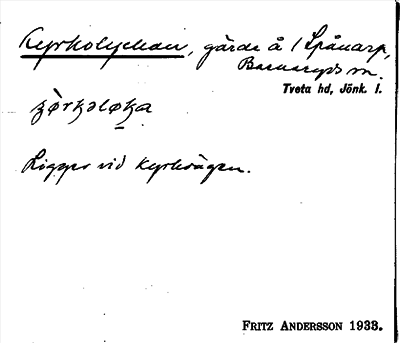 Kyrkolyckan, gärde å 1 Spånarp,
Barnarps sn.
Tveta hd, Jönk. l.
Ligger vid kyrkvägen.
FRITZ ANDERSSON 1933.